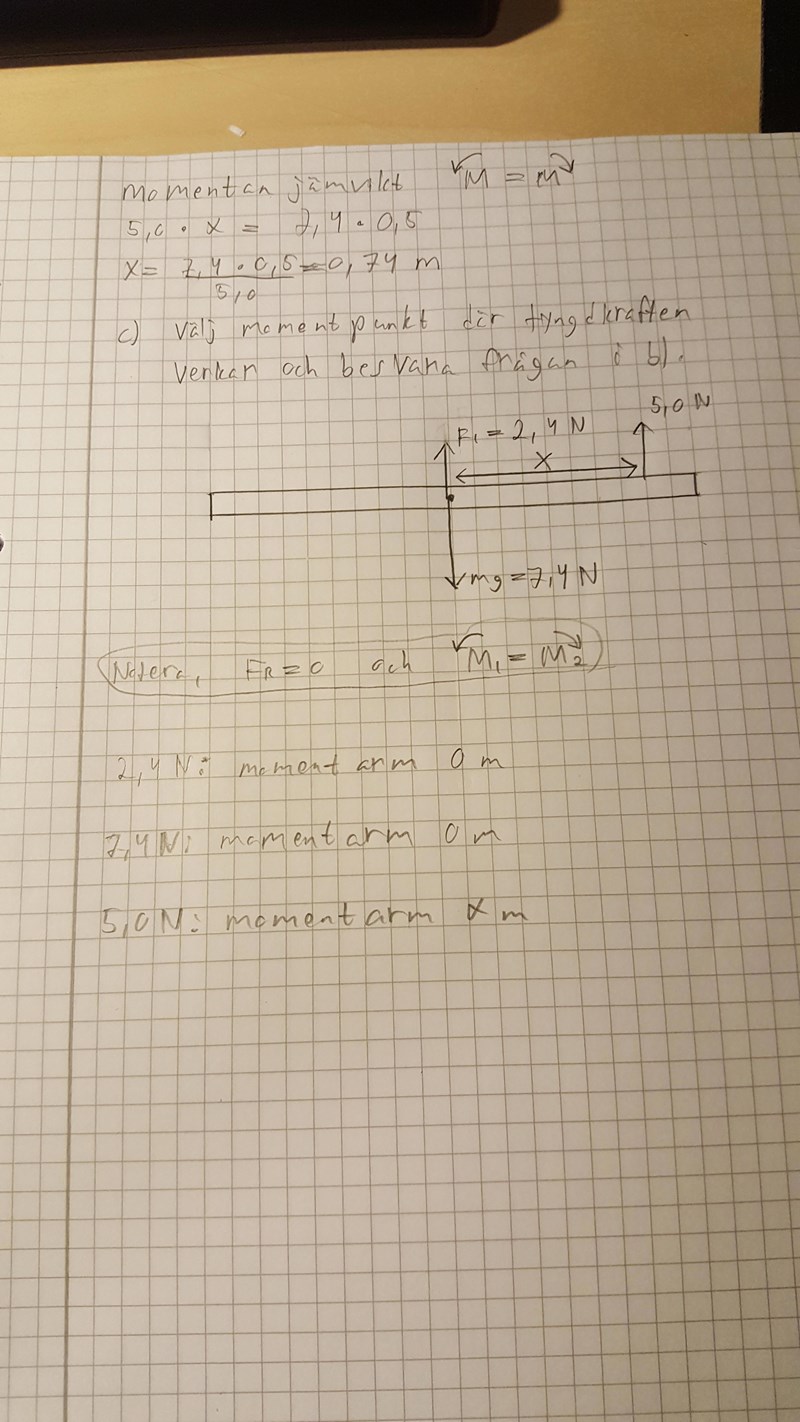 momentan jämvikt M = M
5,0 · x = 7,4 · 0,5
x = 7,4 · 0,5 = 0,74 m
5,0
c) Välj momentpunkt där tyngdkraften
verkan och besvara frågan i b).
5,0 N
F₁ = 2,4 N
x
mg = 7,4 N
Notera, FR = 0 och M₁ = M₂
2,4 N: momentarm 0 m
7,4 N: momentarm 0 m
5,0 N: momentarm x m